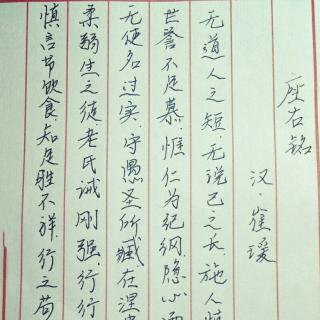 座右铭
汉·崔瑗
无道人之短,无说己之长,施人慎
世誉不足慕,惟仁为纪纲,隐心而
无使名过实,守愚圣所臧,在涅
柔弱生之徒,老氏诫刚强,行行
慎言节饮食,知足胜不祥,行之苟